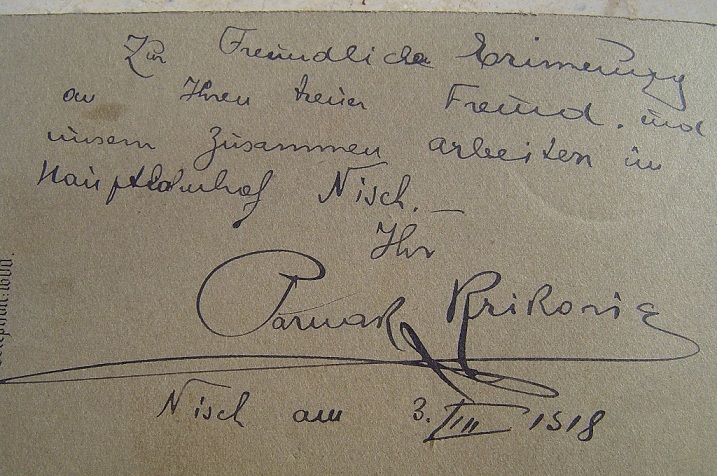 Zur Freundliche Erinnerung
an Ihren treuen Freund. und
unsern Zusammen arbeiten in
Hauptbahnhof Nisch. –
Ihr
Nisch am 3. III 1918